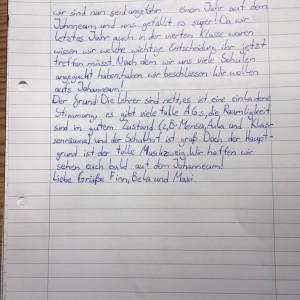 wir sind nun seid ungefähr einen Jahr auf dem
Johanneum und uns gefällt es super! Da wir
letztes Jahr auch in der vierten Klasse waren
wissen wir welche wichtige Entscheidung ihr jetzt
treffen müsst. Nach dem wir uns viele Schulen
angeguckt haben, haben wir beschlossen: Wir wollen
aufs Johanneum!
Der Grund: Die Lehrer sind nett, es ist eine einladene
Stimmung, es gibt viele tolle AGs, die Räumligkeit
sind in gutem Zustand (z.B. Mensa, Aula und Klas-
senräume) und der Schulhof ist groß. Doch der Haupt-
grund ist der tolle Musikzweig. Wir hoffen wir
sehen euch bald auf dem Johanneum!
Liebe Grüße Finn, Bela und Maxi.